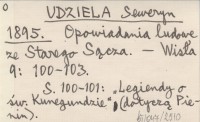 UDZIELA Seweryn
1895. Opowiadania ludowe
ze Starego Sącza. — Wisła
9: 100-103.
S. 100-101: „Legiendy o
św. Kunegundzie" (dotyczą Pie-
nin).